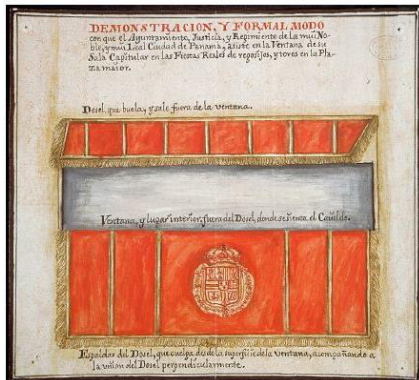 DEMONSTRACION, Y FORMAL MODO
con que el Ayuntamiento, Justicia, y Regimiento de la mui No-
ble, y mui Leal Ciudad de Panamá, asiste en la Ventana de su
Sala Capitular en las Fiestas Reales de regosijos, y toros en la Pla-
za maior.
Dosel, que buela, y sale fuera de la ventana.
Ventana, y lugar interior, fuera del Dosel, donde se sienta el Cavildo.
Espaldas del Dosel, que cuelga desde la superficie de la ventana, acompañando a
la union del Dosel perpendicularmente.